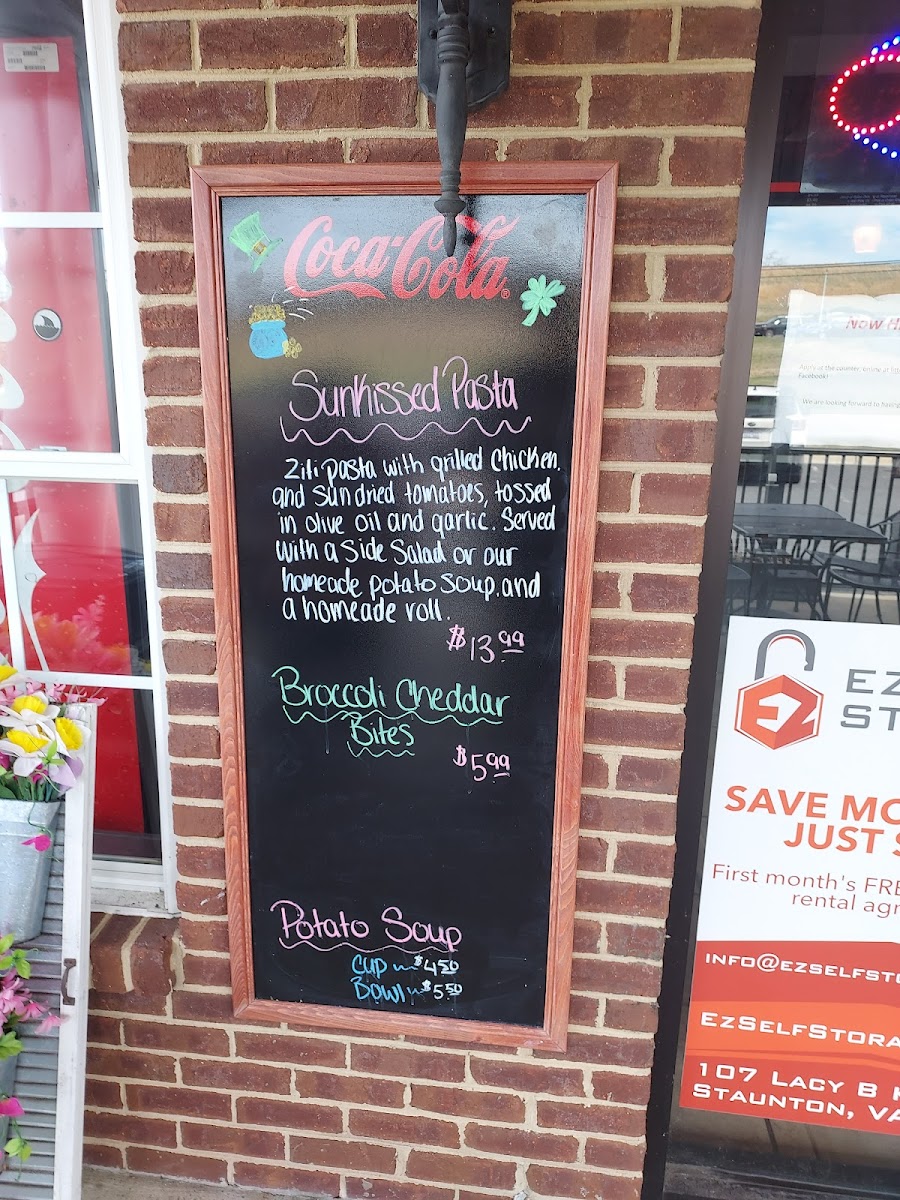 Coca-Cola®
Sunkissed Pasta
Ziti pasta with grilled chicken.
and sundried tomatoes, tossed
in olive oil and garlic. Served
with a side salad or our
homeade potato soup. and
a homeade roll.
$13.99
Broccoli Cheddar
Bites
$5.99
Potato Soup
CUP $4.50
BOWl $5.50
NOW H
Apply at the counter, online at
Facebook!
We are looking forward to
EZ
EZ
ST
SAVE MO
JUST S
First month's FREE
rental agr
INFO@EZSELFSTO
EZSELFSTORA
107 LACY B
STAUNTON, VA